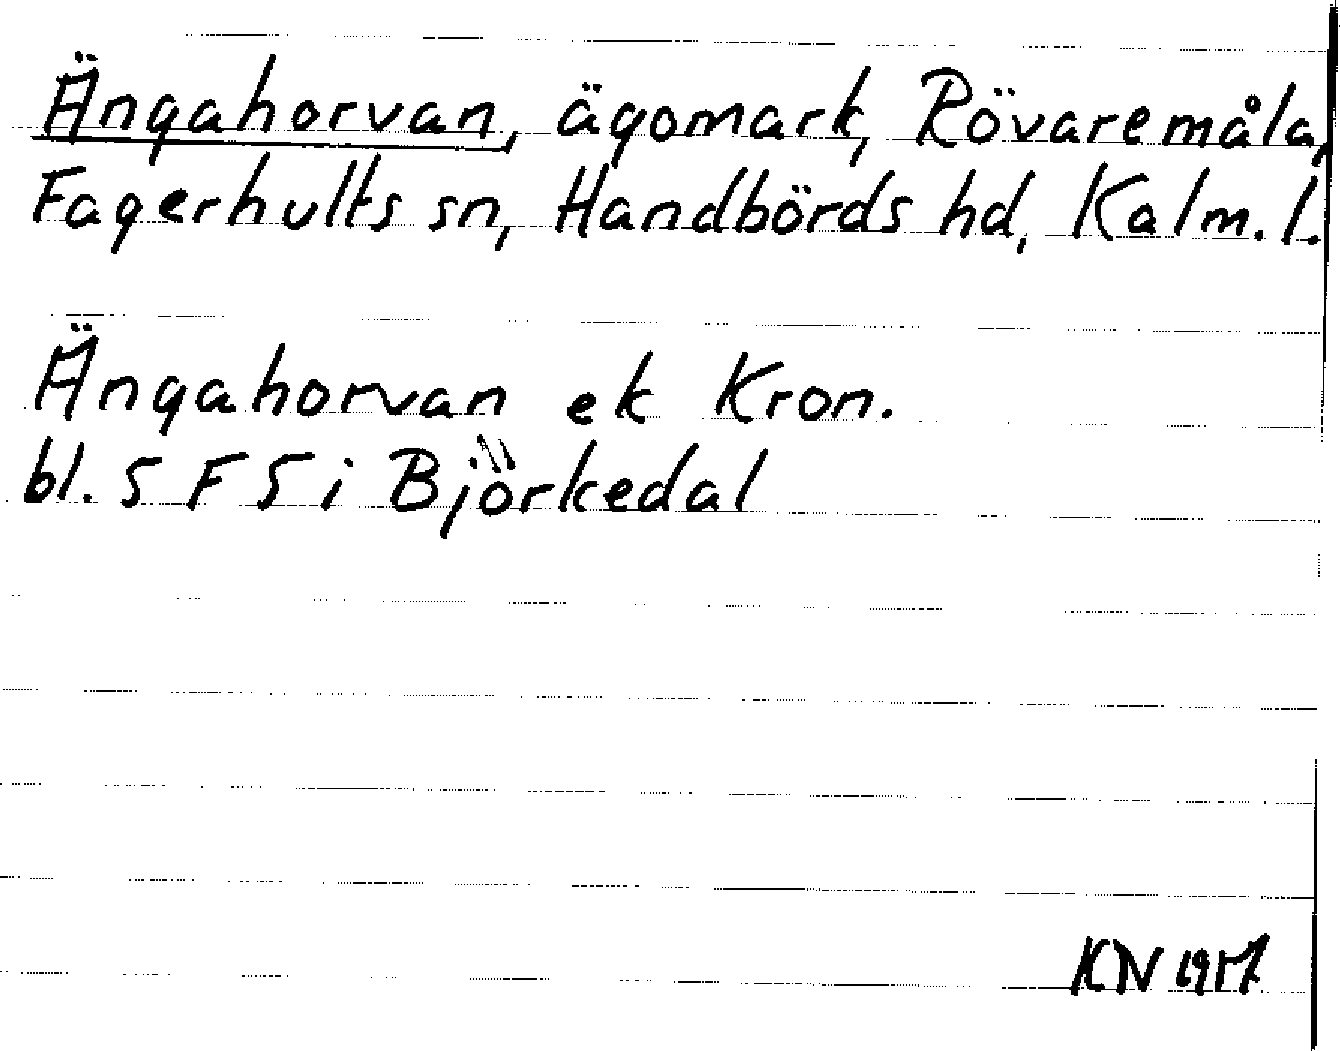 Ängahorvan, ägomark, Rövaremåla,
Fagerhults sn, Handbörds hd, Kalm. l.
Ängahorvan ek Kron.
bl. 5 F 5 i Björkedal
KN 1957